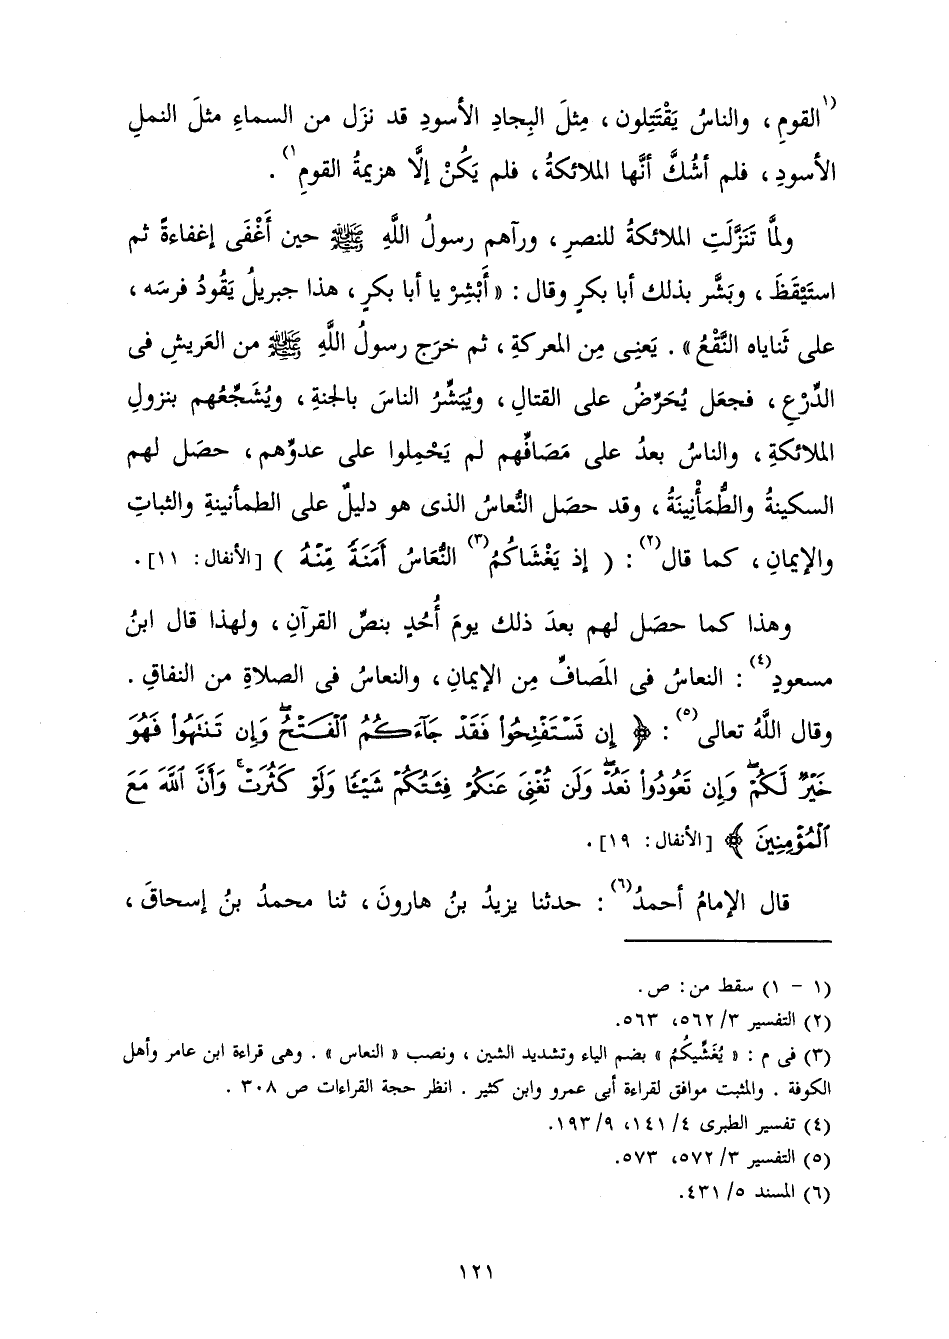 ⁽¹القومِ، والناسُ يَقْتَتِلون، مِثلَ البِجادِ الأسودِ قد نزَل من السماءِ مثلَ النملِ
الأسودِ، فلم أشُكَّ أنَّها الملائكةُ، فلم يَكُنْ إلَّا هزيمةُ القومِ¹⁾.
ولمَّا تَنَزَّلَتِ الملائكةُ للنصرِ، ورآهم رسولُ اللَّهِ ﷺ حين أَغْفَى إغفاءةً ثم
استَيْقَظَ، وبَشَّر بذلك أبا بكرٍ وقال: «أَبْشِرْ يا أبا بكرٍ، هذا جبريلُ يَقُودُ فرسَه،
على ثَناياه النَّقْعُ». يَعنِى مِن المعركةِ، ثم خرَج رسولُ اللَّهِ ﷺ من العَريشِ فى
الدِّرْعِ، فجعَل يُحَرِّضُ على القتالِ، ويُبَشِّرُ الناسَ بالجنةِ، ويُشَجِّعُهم بنزولِ
الملائكةِ، والناسُ بعدُ على مَصَافِّهم لم يَحْمِلوا على عدوِّهم، حصَل لهم
السكينةُ والطُّمَأْنِينَةُ، وقد حصَل النُّعاسُ الذى هو دليلٌ على الطمأنينةِ والثباتِ
والإيمانِ، كما قال(٢): ( إذ يَغْشَاكُمُ(٣) النُّعَاسُ أَمَنَةً مِّنْهُ ) [الأنفال: ١١].
وهذا كما حصَل لهم بعدَ ذلك يومَ أُحُدٍ بنصِّ القرآنِ، ولهذا قال ابنُ
مسعودٍ(٤): النعاسُ فى المَصافِّ مِن الإيمانِ، والنعاسُ فى الصلاةِ من النفاقِ.
وقال اللَّهُ تعالى(٥): ﴿ إِن تَسْتَفْتِحُوا۟ فَقَدْ جَآءَكُمُ ٱلْفَتْحُ ۖ وَإِن تَنتَهُوا۟ فَهُوَ
خَيْرٌ لَّكُمْ ۖ وَإِن تَعُودُوا۟ نَعُدْ ۖ وَلَن تُغْنِىَ عَنكُمْ فِئَتُكُمْ شَيْـًٔا وَلَوْ كَثُرَتْ ۚ وَأَنَّ ٱللَّهَ مَعَ
ٱلْمُؤْمِنِينَ ﴾ [الأنفال: ١٩].
قال الإمامُ أحمدُ(٦): حدثنا يزيدُ بنُ هارونَ، ثنا محمدُ بنُ إسحاقَ،
(١ - ١) سقط من: ص.
(٢) التفسير ٣/ ٥٦٢، ٥٦٣.
(٣) فى م: «يُغَشِّيكُمُ» بضم الياء وتشديد الشين، ونصب «النعاس». وهى قراءة ابن عامر وأهل
الكوفة. والمثبت موافق لقراءة أبى عمرو وابن كثير. انظر حجة القراءات ص ٣٠٨.
(٤) تفسير الطبرى ٤/ ١٤١، ٩/ ١٩٣.
(٥) التفسير ٣/ ٥٧٢، ٥٧٣.
(٦) المسند ٥/ ٤٣١.
١٢١